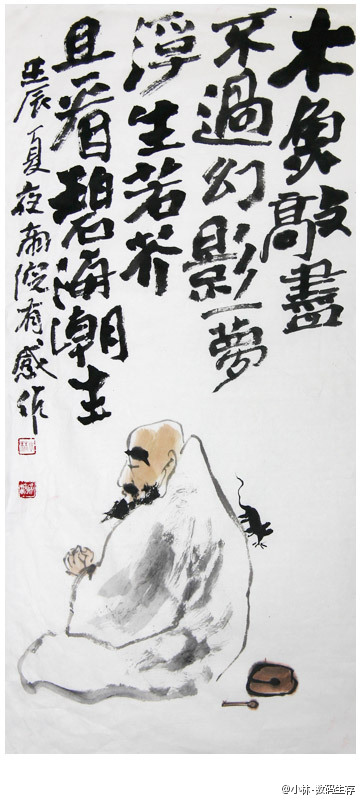 木魚敲盡
不過幻影一夢
浮生若芥
且看碧海潮生
壬辰夏夜有感作
@小林-数码生存